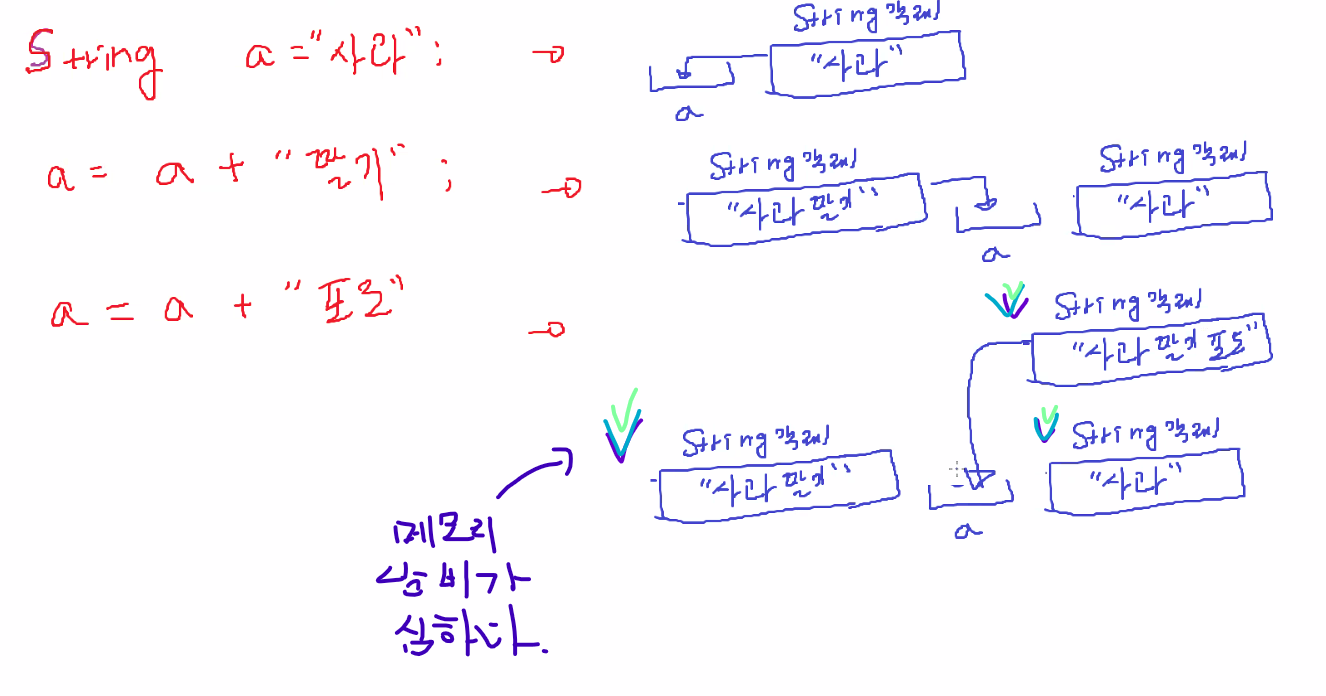 String a = "사과";
String 객체
"사과"
a
a = a + "딸기";
String 객체
"사과 딸기"
a
String 객체
"사과"
a = a + "포도"
String 객체
"사과 딸기 포도"
String 객체
"사과 딸기"
a
String 객체
"사과"
메모리
소비가
심하다.